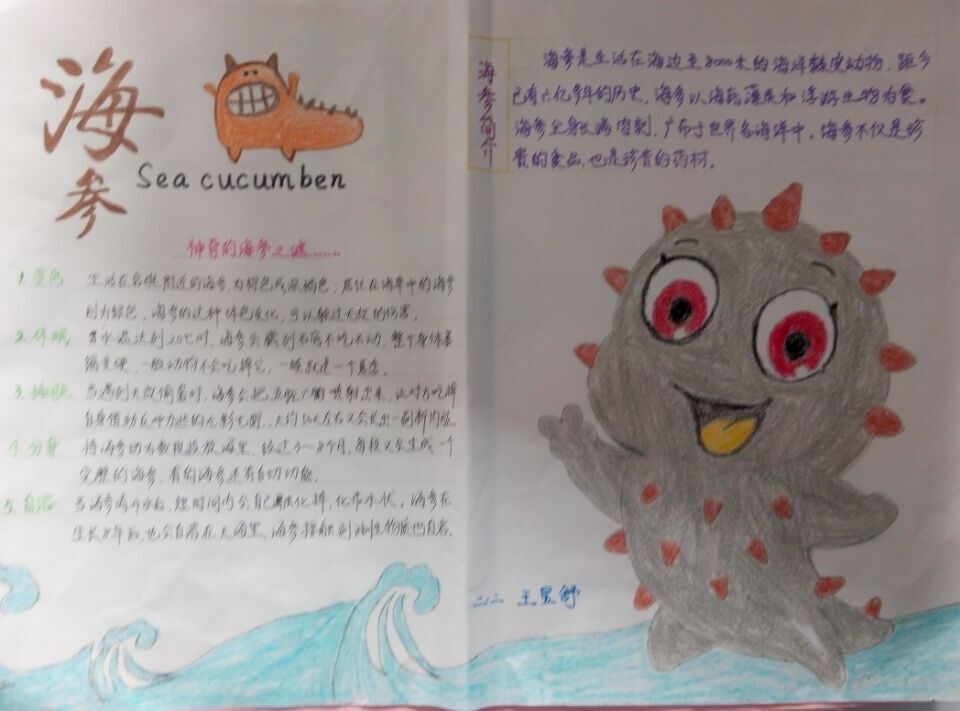 海参
Sea cucumben
神奇的海参之谜……
1. 变色 生活在岩礁附近的海参,为棕色或灰褐色;居住在海草中的海参
则为绿色,海参的这种体色变化,可以躲过天敌的伤害。
2. 休眠 当水温达到20℃时,海参会藏到石底不吃不动,整个身体萎
缩变硬,一般动物不会吃掉它,一睡就是一个夏季。
3. 排脏 当遇到天敌偷袭时,海参会把五脏六腑喷射出来,让对方吃掉
自身借助反冲力逃的无影无踪,大约50天左右又会长出一副新内脏
4. 分身 将海参切为数段投放海里,经过3~8个月,每段又会生成一个
完整的海参,有的海参还有自切功能
5. 自溶 当海参离开水后,短时间内会自己融化掉,化作水状,海参在
生长8年后,也会自溶在大海里,海参接触到油性物质也自溶。
海参简介
海参是生活在海边至8000米的海洋棘皮动物,距今
已有六亿多年的历史,海参以海底藻类和浮游生物为食。
海参全身长满肉刺,广布于世界各海洋中。海参不仅是珍
贵的食品,也是珍贵的药材。
二、二 王昱舒